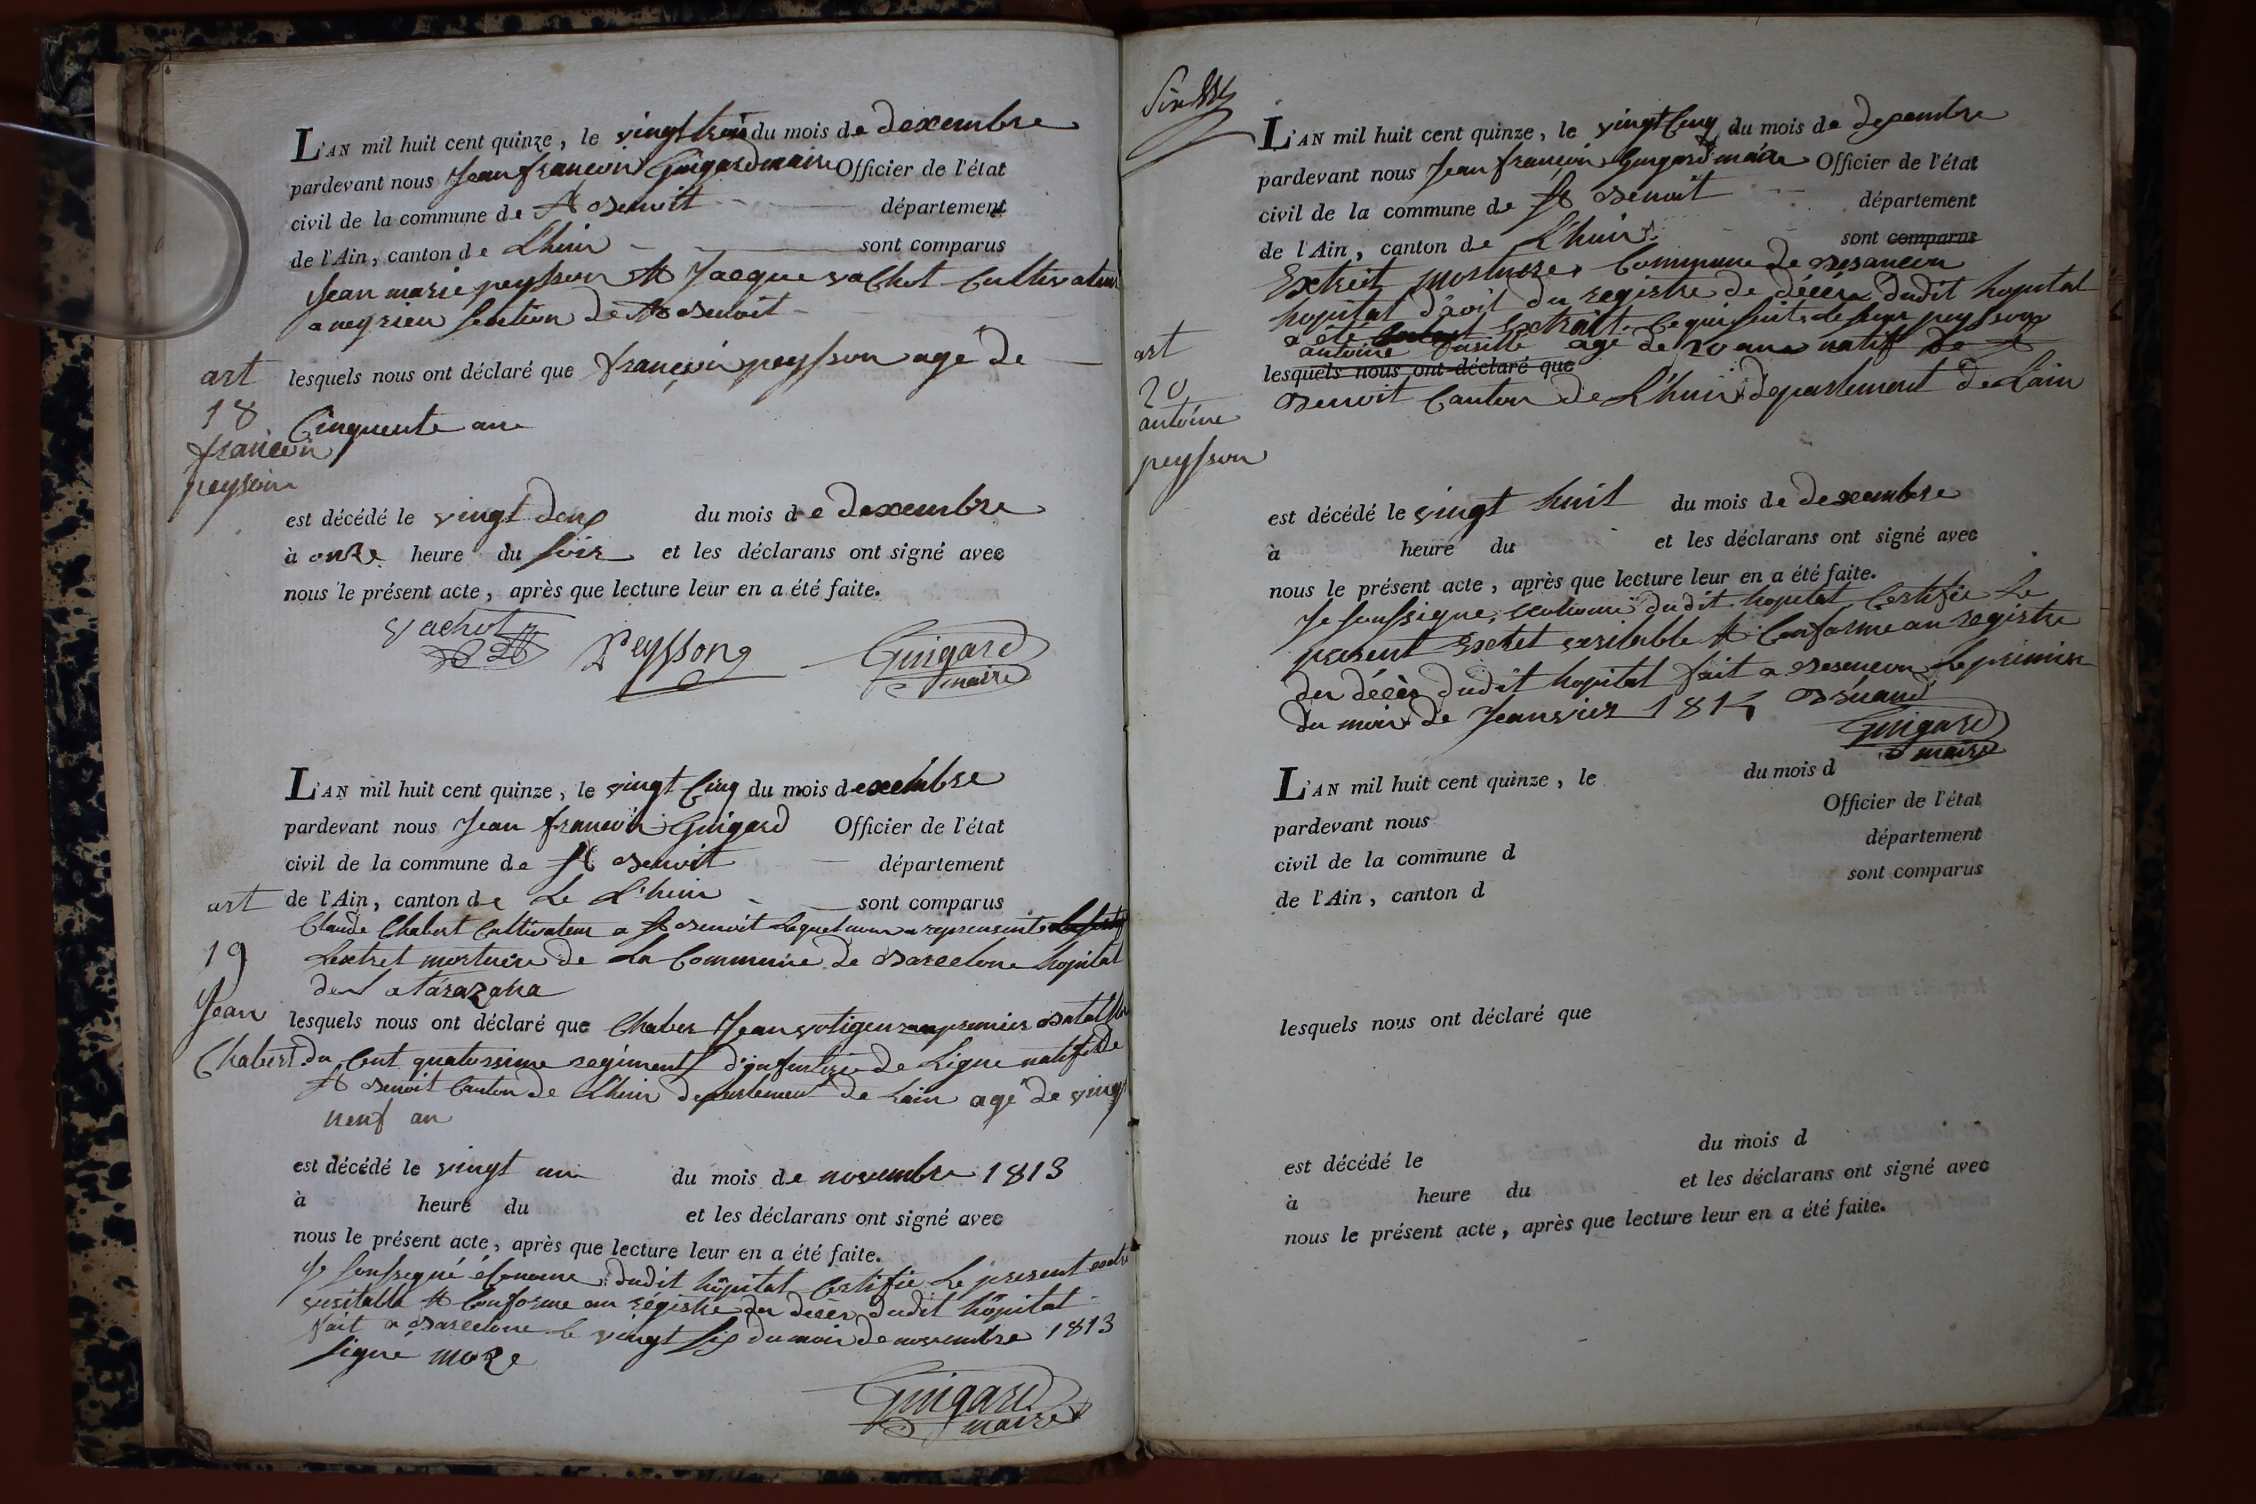 L'AN mil huit cent quinze, le vingt trois du mois de dexembre
pardevant nous Jean françois Guigard maire Officier de l'état
civil de la commune de St Benoit département
de l'Ain, canton de Lhuis sont comparus
Jean marie peysson et Jacque vachot Cultivateur
a neyrieu section de St Benoit
art
18
françois
peysson
lesquels nous ont déclaré que françois peysson agé de
Cinquente an
est décédé le vingt deux du mois de dexembre
à onze heure du soir et les déclarans ont signé avec
nous le présent acte, après que lecture leur en a été faite.
Vachot Peysson Guigard
maire
L'AN mil huit cent quinze, le vingt Cinq du mois dexembre
pardevant nous Jean françois Guigard Officier de l'état
civil de la commune de St Benoit département
de l'Ain, canton de Le L'huis sont comparus
Claude Chabert Cultivateur a St Benoit Lequel nous a representé
Lextret mortuere de La Commune de Barcelone hopital
den atarazana
art
19
Jean
Chabert
lesquels nous ont déclaré que Chaber Jean voligeur au premier Batallon
du Cent quatorsieme regiment d'infenterie de Ligne natif de
St Benoit Canton de Lhuis departement de Lain agé de vingt
neuf an
est décédé le vingt un du mois de novembre 1813
à heure du et les déclarans ont signé avec
nous le présent acte, après que lecture leur en a été faite.
Je soussigné économe dudit hôpital Certifie Le present extre
veritable et Conforme au régistre des décès dudit hôpital
Fait a Barcelone le vingt six du mois de novembre 1813
signe moze
Guigard
maire
L'AN mil huit cent quinze, le vingt Cinq du mois de dexembre
pardevant nous Jean françois Guigard maire Officier de l'état
civil de la commune de St Benoit département
de l'Ain, canton de L'huis sont comparus
Extrait mortuere Commune de Besancon
hopital d'avoit du registre de décès dudit hopital
a été Extrait Ce qui suit le sieur peysson
antoine fusillé agé de 20 ans natif de St
art
20
antoine
peysson
lesquels nous ont déclaré que
Benoit Canton de L'huis departement de Lain
est décédé le vingt huit du mois de dexembre
à heure du et les déclarans ont signé avec
nous le présent acte, après que lecture leur en a été faite.
Je soussigne, économe dudit hopital Certifie Le
present Extret veritable et Conforme au registre
des décès dudit hopital fait a Besencon Le premier
du mois de Jeanvier 1814
Guigard
maire
L'AN mil huit cent quinze, le du mois d
pardevant nous Officier de l'état
civil de la commune d département
de l'Ain, canton d sont comparus
lesquels nous ont déclaré que
est décédé le du mois d
à heure du et les déclarans ont signé avec
nous le présent acte, après que lecture leur en a été faite.